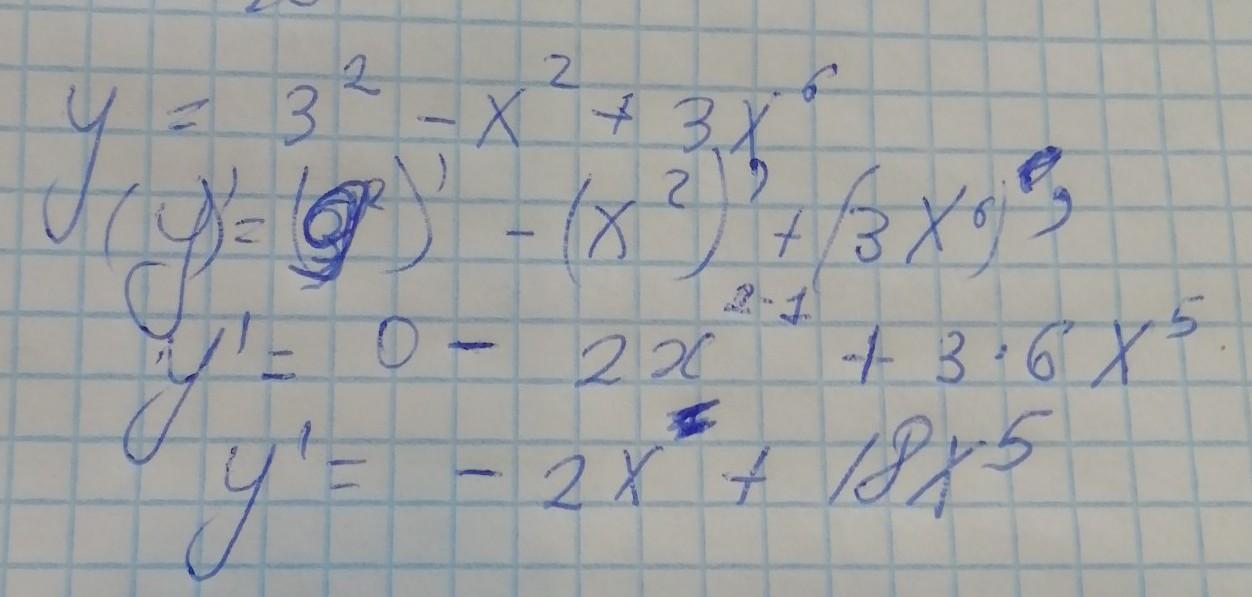 y = 3² - x² + 3x⁶
(y)' = ( ²)' - (x²)' + (3x⁶)'
y' = 0 - 2x²⁻¹ + 3·6x⁵
y' = -2x + 18x⁵